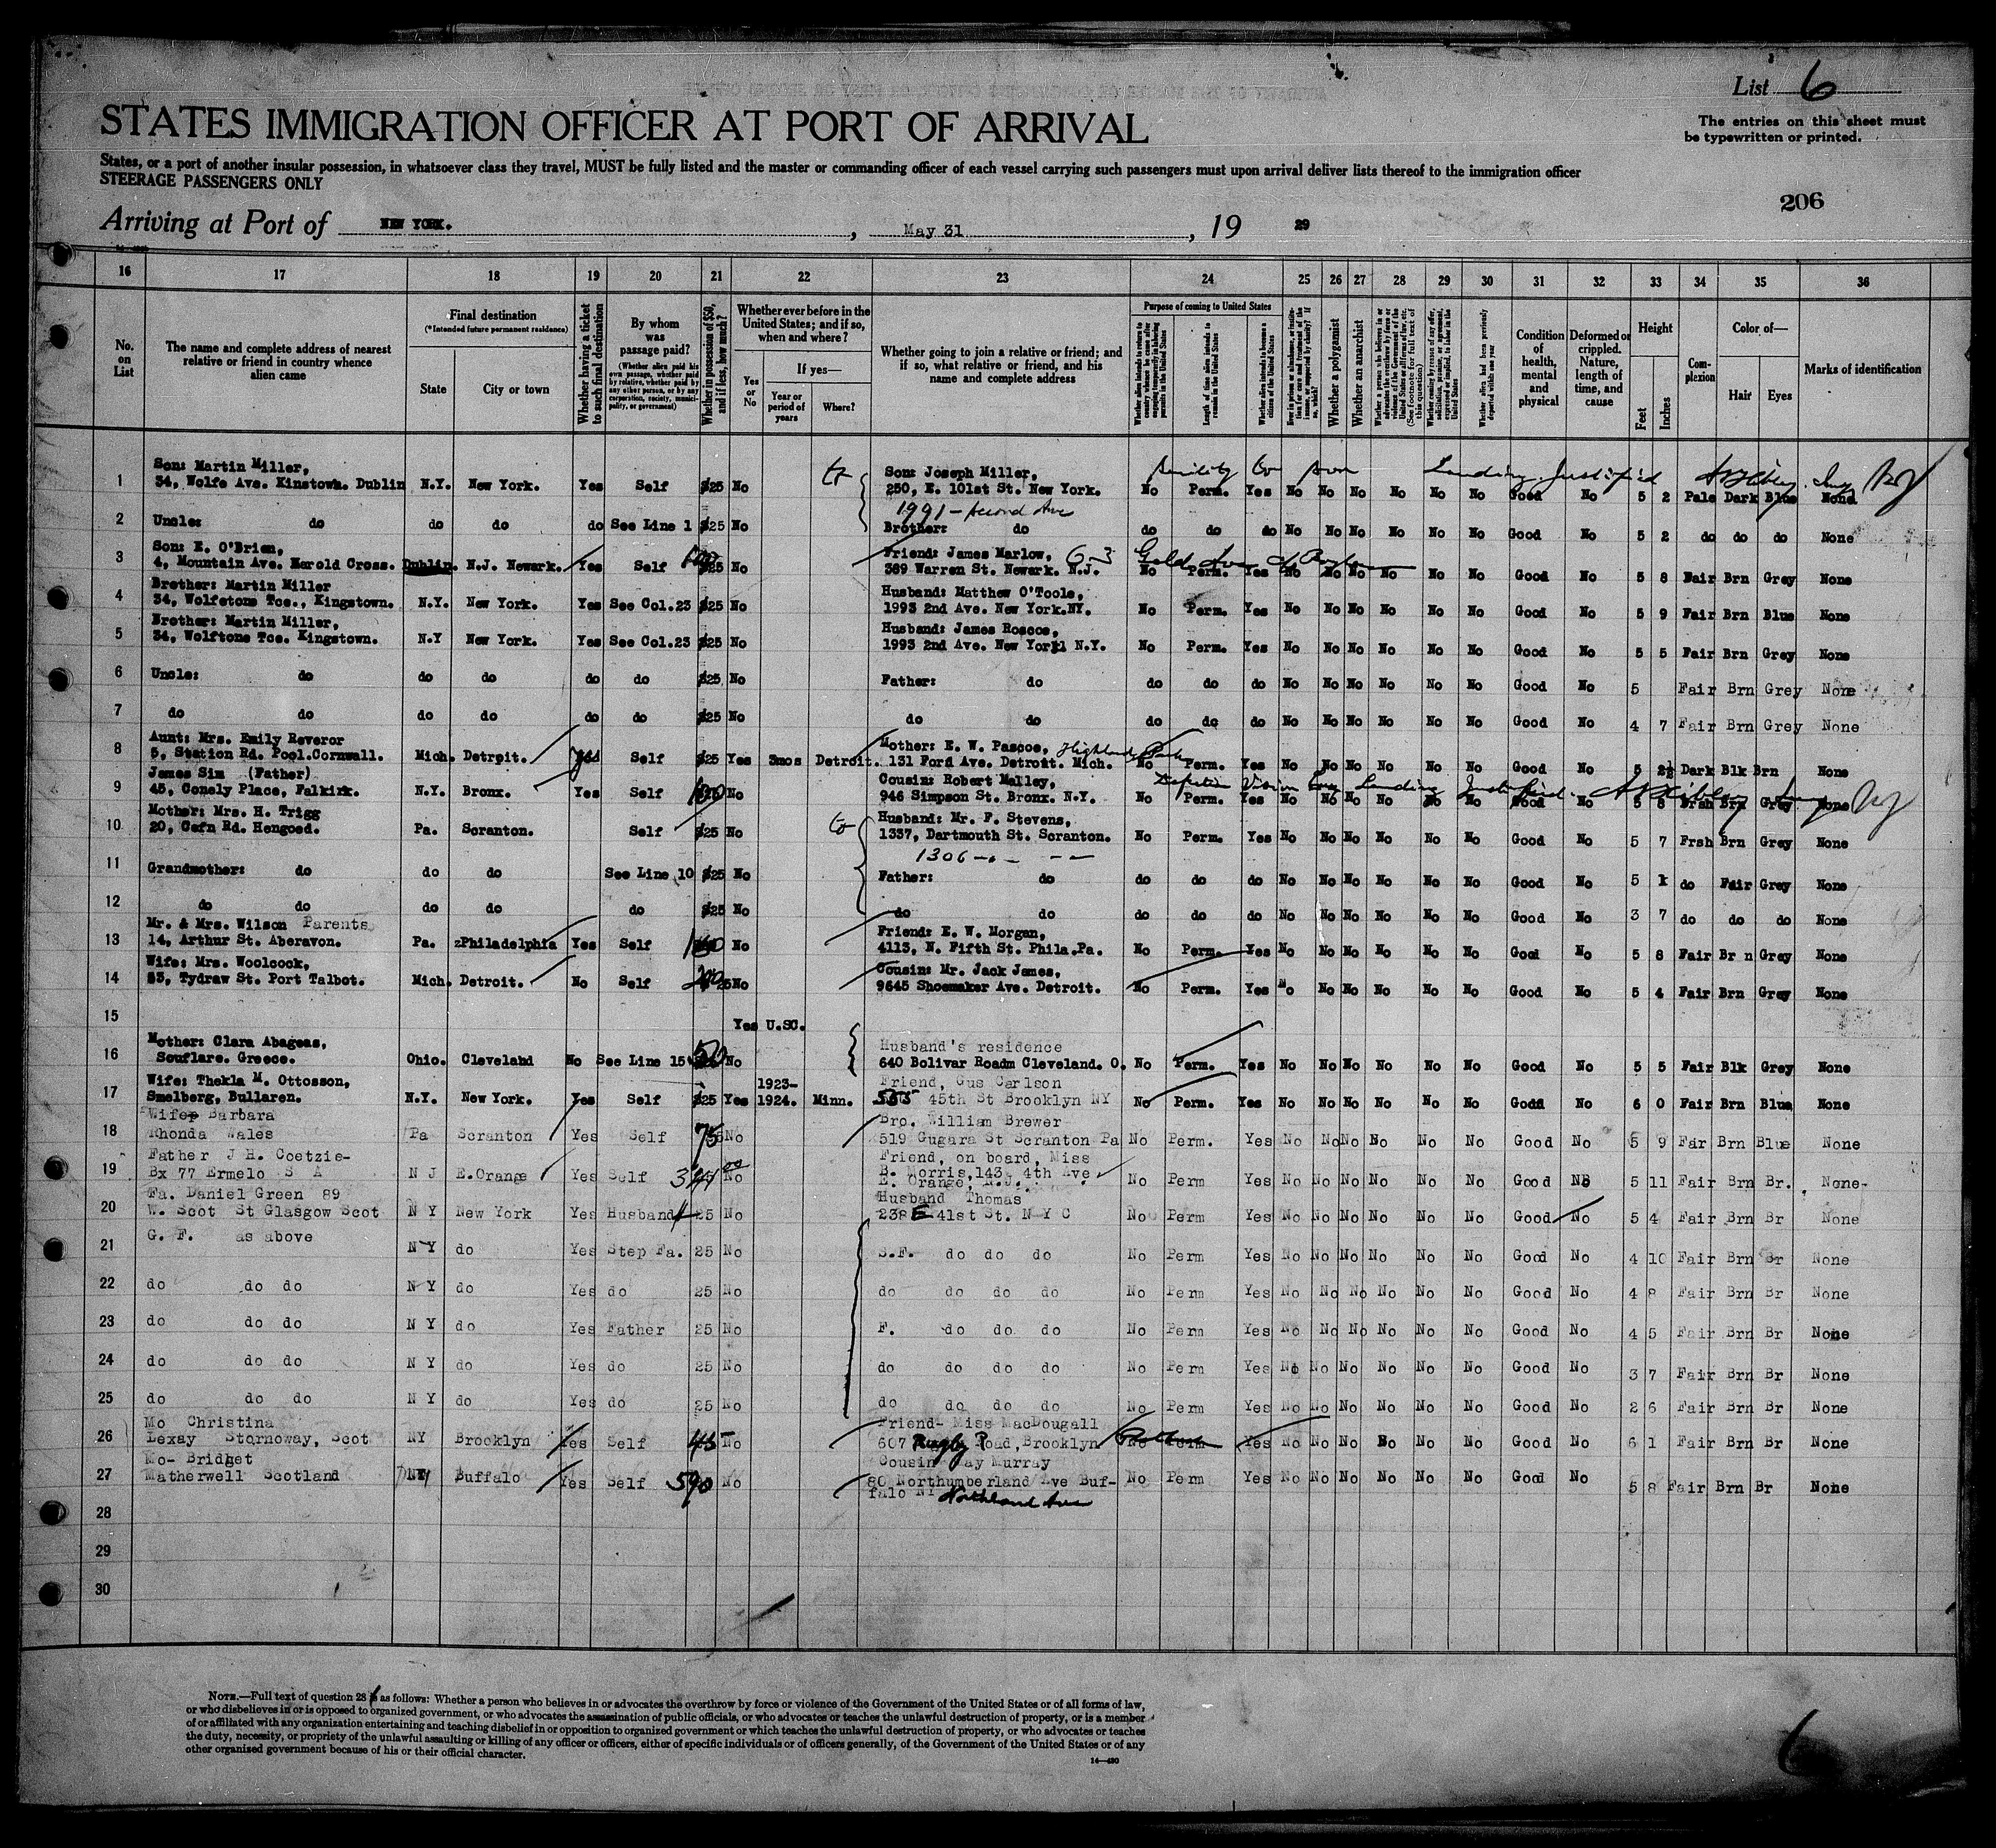 List 6
The entries on this sheet must
be typewritten or printed.
STATES IMMIGRATION OFFICER AT PORT OF ARRIVAL
States, or a port of another insular possession, in whatsoever class they travel, MUST be fully listed and the master or commanding officer of each vessel carrying such passengers must upon arrival deliver lists thereof to the immigration officer
STEERAGE PASSENGERS ONLY
206
Arriving at Port of NEW YORK. , May 31 , 19 29
16 17 18 19 20 21 22 23 24 25 26 27 28 29 30 31 32 33 34 35 36
No. on List
The name and complete address of nearest relative or friend in country whence alien came
Final destination (*Intended future permanent residence)
State
City or town
Whether having a ticket to such final destination
By whom was passage paid?
(Whether alien paid his own passage, whether paid by relative, whether paid by any other person, or by any corporation, society, municipality, or government)
Whether in possession of $50, and if less, how much?
Whether ever before in the United States; and if so, when and where?
Yes or No
If yes—
Year or period of years
Where?
Whether going to join a relative or friend; and if so, what relative or friend, and his name and complete address
Purpose of coming to United States
Length of time alien intends to remain in the United States
Whether alien intends to become a citizen of the United States
Whether a polygamist
Whether an anarchist
Condition of health, mental and physical
Deformed or crippled. Nature, length of time, and cause
Height
Feet
Inches
Complexion
Color of—
Hair
Eyes
Marks of identification
Son: Martin Miller, Son: Joseph Miller, Senility Landing Justified
1 34, Wolfe Ave. Kinstown. Dublin N.Y. New York. Yes Self $25 No 250, E. 101st St. New York. No Perm. Yes No No No No No No Good No 5 2 Pale Dark Blue None
1991 - Second Ave
2 Uncle: do do do do See Line 1 $25 No Brother: do do do do No No No No No No Good No 5 2 do do do None
Son: E. O'Brien, Friend: James Marlow,
3 4, Mountain Ave. Harold Cross. Dublin. N.J. Newark. Yes Self $25 No 369 Warren St. Newark. N.J. No Perm. Yes No No No No No No Good No 5 8 Fair Brn Grey None
Brother: Martin Miller Husband: Matthew O'Toole,
4 34, Wolfetone Tce., Kingstown. N.Y. New York. Yes See Col.23 $25 No 1993 2nd Ave. New York.NY. No Perm. Yes No No No No No No Good No 5 9 Fair Brn Blue None
Brother: Martin Miller, Husband: James Roscoe,
5 34, Wolftone Tce. Kingstown. N.Y New York. Yes See Col.23 $25 No 1993 2nd Ave. New York N.Y. No Perm. Yes No No No No No No Good No 5 5 Fair Brn Grey None
6 Uncle: do do do do do $25 No Father: do do do do No No No No No No Good No 5 Fair Brn Grey None
7 do do do do do do $25 No do do do do do No No No No No No Good No 4 7 Fair Brn Grey None
Aunt: Mrs. Emily Reveror Mother: E. W. Pascoe, Highland Park
8 5, Station Rd. Pool.Cornwall. Mich. Detroit. Yes Self $25 Yes 3mos Detroit. 131 Ford Ave. Detroit. Mich. No Perm. Yes No No No No No No Good No 5 2½ Dark Blk Brn None
James Sim (Father) Cousin: Robert Malley, Defective Vision Landing Justified.
9 45, Conely Place, Falkirk. N.Y. Bronx. Yes Self No 946 Simpson St. Bronx. N.Y. No Perm. Yes No No No No No No Good No 5 8 Frsh Brn Grey None
Mother: Mrs. H. Trigg Husband: Mr. F. Stevens,
10 20, Cefn Rd. Hengoed. Pa. Scranton. Self $25 No 1337, Dartmouth St. Scranton. No Perm. Yes No No No No No No Good No 5 7 Frsh Brn Grey None
1306
11 Grandmother: do do do See Line 10 $25 No Father: do do do do No No No No No No Good No 5 do Fair Grey None
12 do do do do do $25 No do do do do do No No No No No No Good No 3 7 do do do None
Mr. & Mrs. Wilson Parents Friend: E. W. Morgan,
13 14, Arthur St. Aberavon. Pa. Philadelphia Yes Self No 4113, N. Fifth St. Phila.Pa. No Perm. Yes No No No No No No Good No 5 8 Fair Br n Grey None
Wife: Mrs. Woolcock, Cousin: Mr. Jack James,
14 83, Tydraw St. Port Talbot. Mich. Detroit. No Self No 9645 Shoemaker Ave. Detroit. No Perm. Yes No No No No No No Good No 5 4 Fair Brn Grey None
15 Yes U.SC.
Mother: Clara Abageas, Husband's residence
16 Souflare. Greece. Ohio. Cleveland No See Line 15 No 640 Bolivar Roadm Cleveland. O. No Perm. Yes No No No No No No Good No 5 5 Fair Blk Grey None
Wife: Thekla M. Ottosson, 1923- Friend, Gus Carlson
17 Smelberg, Bullaren. N.Y. New York. Yes Self $25 Yes 1924. Minn. 555 45th St Brooklyn NY No Perm. Yes No No No No No No Good No 6 0 Fair Brn Blue None
Wife Barbara Bro. William Brewer
18 Rhonda Wales Pa Scranton Yes Self 75 No 519 Gugara St Scranton Pa No Perm. Yes No No No No No No Good No 5 9 Fair Brn Blue None
Father J H. Coetzie- Friend, on board, Miss
19 Bx 77 Ermelo S A N J E.Orange Yes Self No B. Morris,143, 4th Ave No Perm Yes No No No No No No Good No 5 11 Fair Brn Br. None-
E. Orange, N.J.
Fa. Daniel Green 89 Husband Thomas
20 W. Scot St Glasgow Scot N Y New York Yes Husband 25 No 238 E 41st St. N Y C No Perm Yes No No No No No No Good No 5 4 Fair Brn Br None
21 G. F. as above N Y do Yes Step Fa. 25 No S.F. do do do No Perm Yes No No No No No No Good No 4 10 Fair Brn Br None
22 do do do N Y do Yes do 25 No do do do do No Perm Yes No No No No No No Good No 4 8 Fair Brn Br None
23 do do do N Y do Yes Father 25 No F. do do do No Perm Yes No No No No No No Good No 4 5 Fair Brn Br None
24 do do do N Y do Yes do 25 No do do do do No Perm Yes No No No No No No Good No 3 7 Fair Brn Br None
25 do do do N Y do Yes do 25 No do do do do No Perm Yes No No No No No No Good No 2 6 Fair Brn Br None
Mo Christina Friend- Miss MacDougall
26 Lexay Stornoway, Scot NY Brooklyn Yes Self 45 No 607 Rugby Road, Brooklyn No Perm Yes No No No No No No Good No 6 1 Fair Brn Br None
Mo- Bridget Cousin May Murray
27 Matherwell Scotland NY Buffalo Yes Self 590 No 80 Northumberland Ave Buf- No Perm Yes No No No No No No Good No 5 8 Fair Brn Br None
falo NY Northland Ave
28
29
30
NOTE.—Full text of question 28 is as follows: Whether a person who believes in or advocates the overthrow by force or violence of the Government of the United States or of all forms of law,
or who disbelieves in or is opposed to organized government, or who advocates the assassination of public officials, or who advocates or teaches the unlawful destruction of property, or is a member
of or affiliated with any organization entertaining and teaching disbelief in or opposition to organized government or which teaches the unlawful destruction of property, or who advocates or teaches
the duty, necessity, or propriety of the unlawful assaulting or killing of any officer or officers, either of specific individuals or of officers generally, of the Government of the United States or of any
other organized government because of his or their official character.
14—430
6